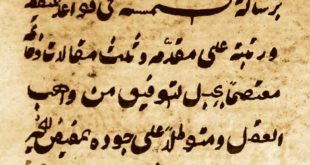 برسالة الشمسية في قواعد
ورتبته على مقدمة وثلث مقالات وخاتمة
معتصماً بحبل التوفيق من واهب
العقل ومتوكلاً على جوده المفيض للخير